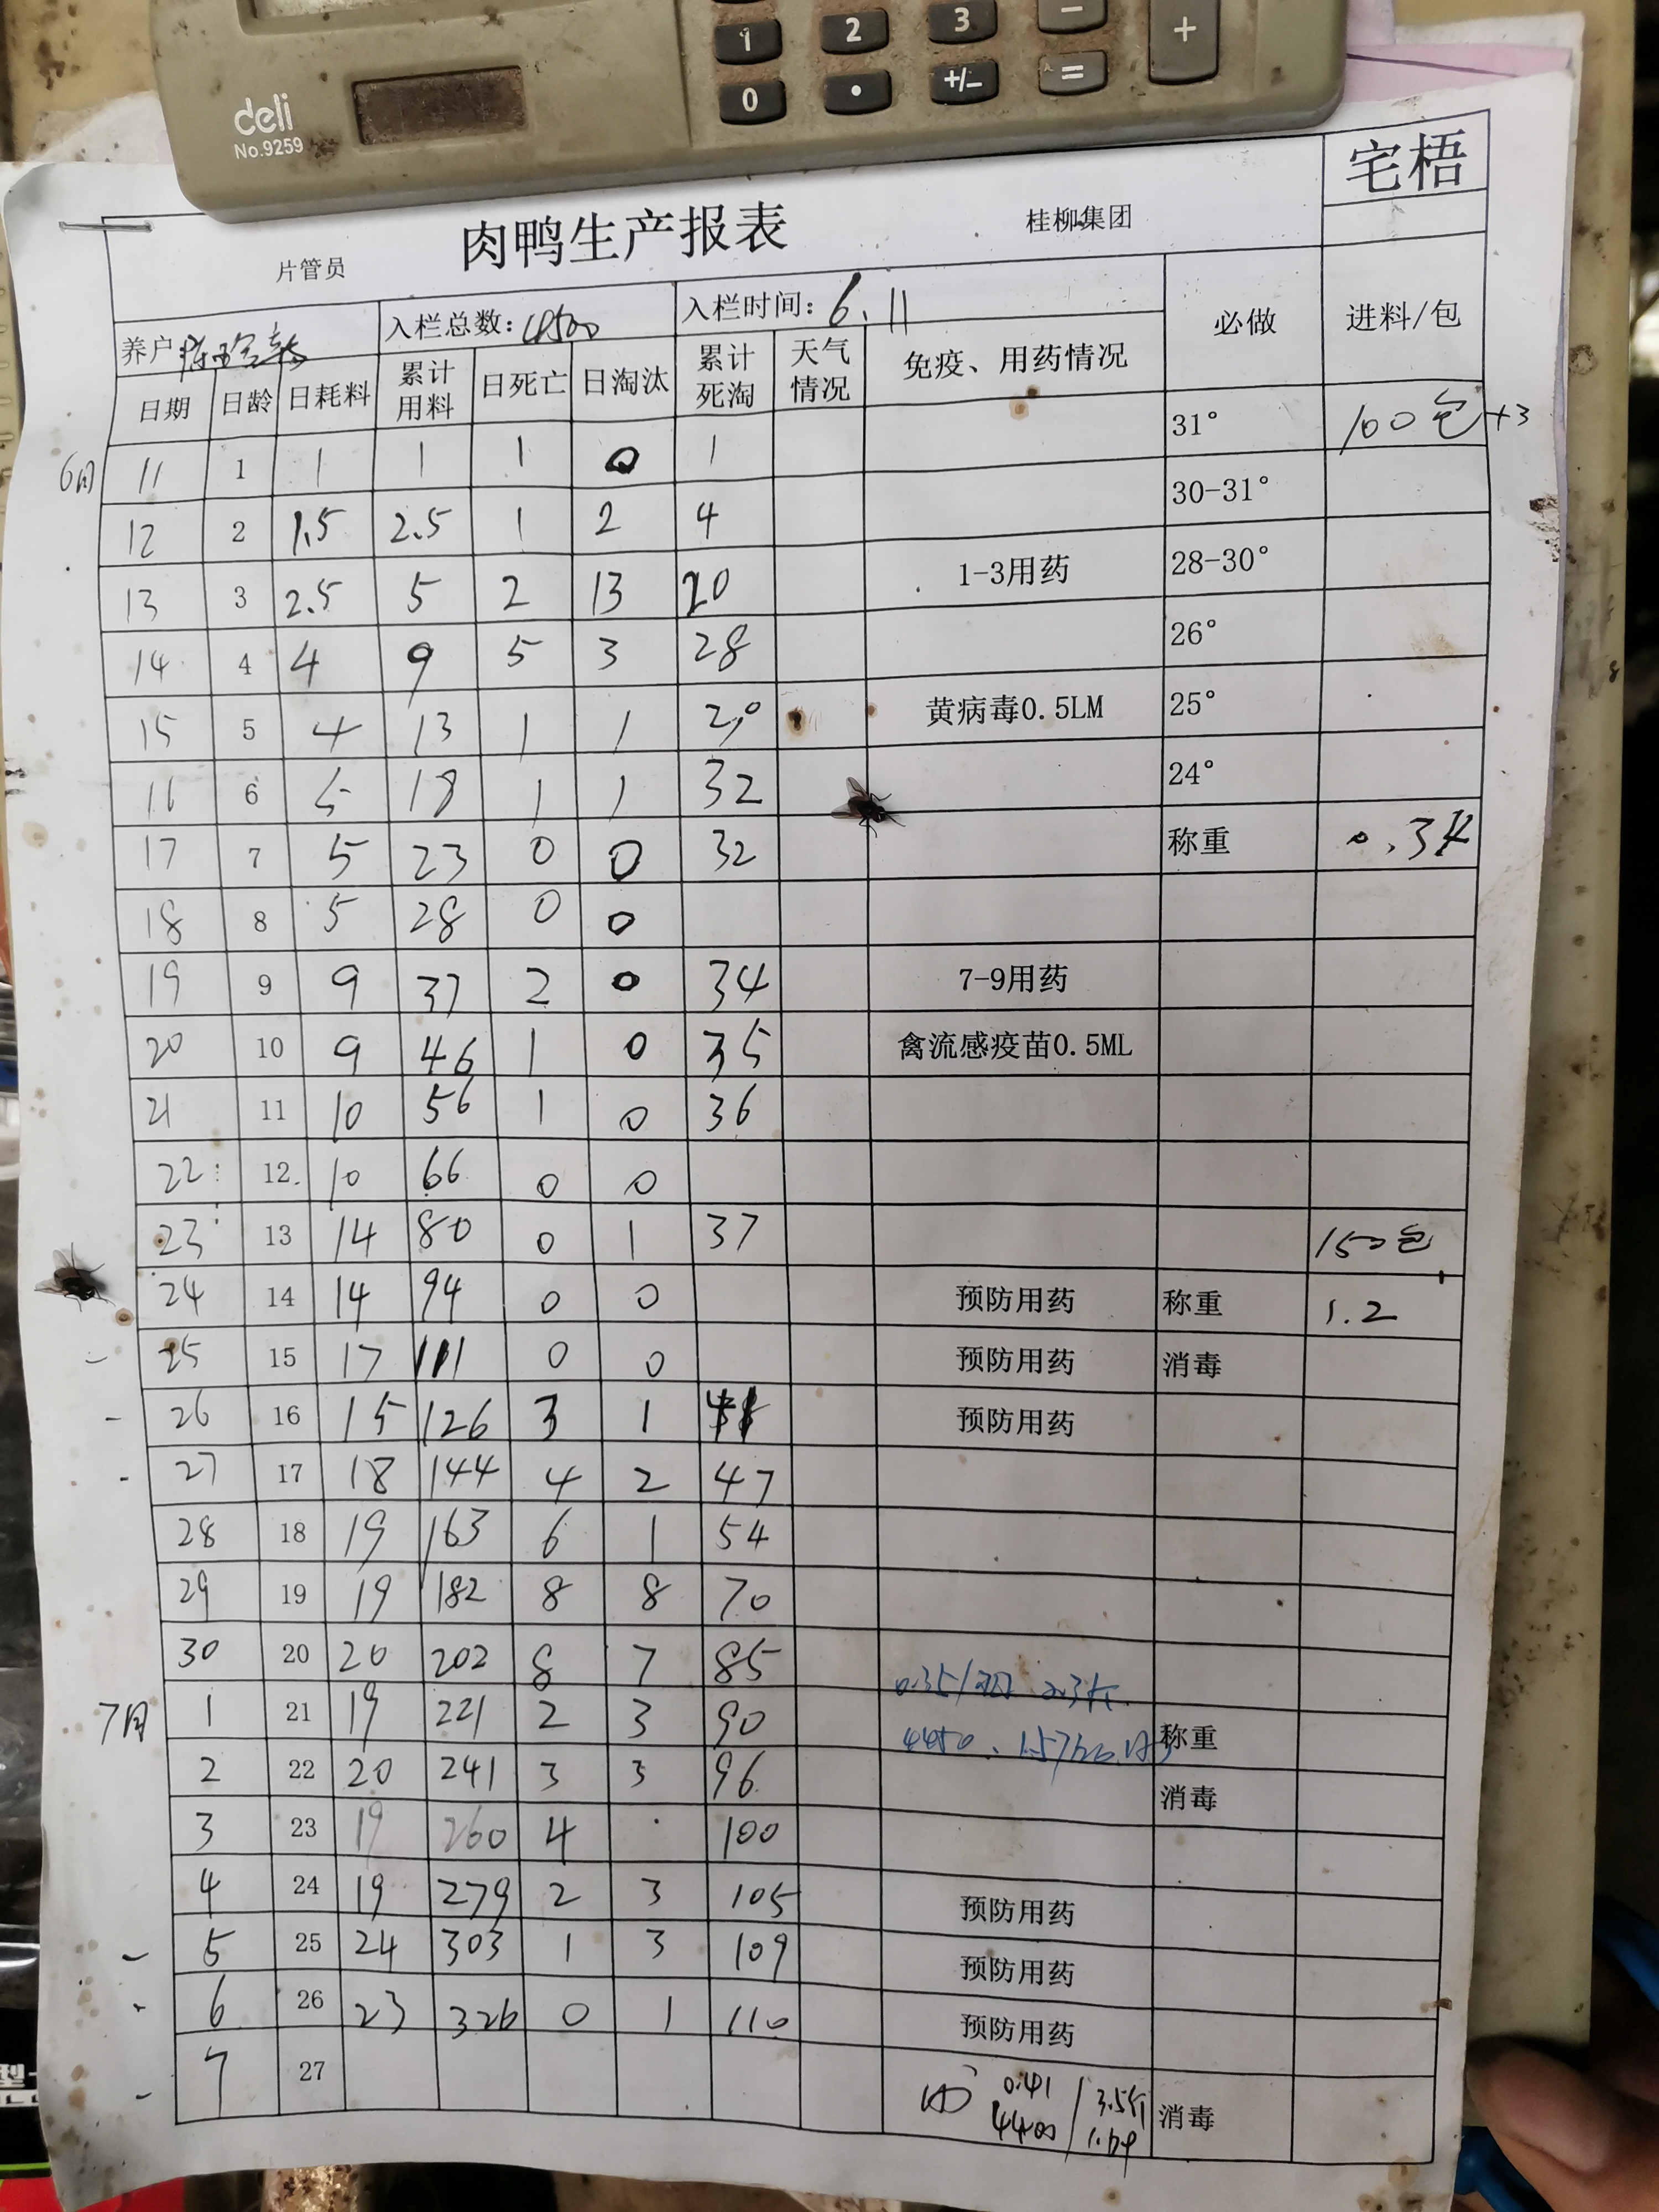 1 2 3 − +
0 • +/− =
deli
No.9259
宅梧
肉鸭生产报表 桂柳集团
片管员
养户 入栏总数：4500 入栏时间：6.11 必做 进料/包
日期 日龄 日耗料 累计用料 日死亡 日淘汰 累计死淘 天气情况 免疫、用药情况
6月 11 1 1 1 1 0 1 31° 100包+3
12 2 1.5 2.5 1 2 4 30-31°
13 3 2.5 5 2 13 20 1-3用药 28-30°
14 4 4 9 5 3 28 26°
15 5 4 13 1 1 黄病毒0.5LM 25°
16 6 5 18 1 1 32 24°
17 7 5 23 0 0 32 称重 0.3
18 8 5 28 0 0
19 9 9 37 2 0 34 7-9用药
20 10 9 46 1 0 35 禽流感疫苗0.5ML
21 11 10 56 1 0 36
22 12 10 66 0 0
23 13 14 80 0 1 37 150包
24 14 14 94 0 0 预防用药 称重 1.2
25 15 17 111 0 0 预防用药 消毒
26 16 15 126 3 1 41 预防用药
27 17 18 144 4 2 47
28 18 19 163 6 1 54
29 19 19 182 8 8 70
30 20 20 202 8 7 85
7月 1 21 19 221 2 3 90 4450 称重
2 22 20 241 3 3 96 消毒
3 23 19 260 4 100
4 24 19 279 2 3 105 预防用药
5 25 24 303 1 3 109 预防用药
6 26 23 326 0 1 110 预防用药
7 27 0.41 3.5斤 消毒
4400